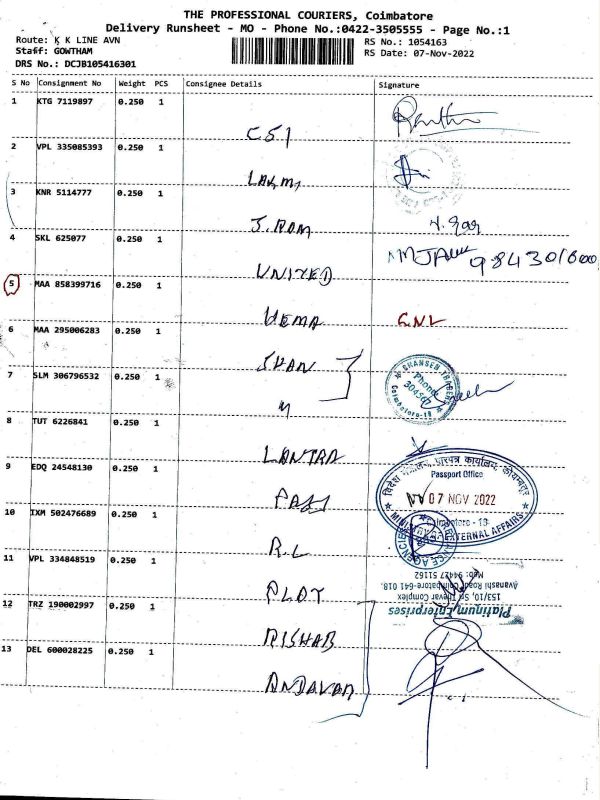 THE PROFESSIONAL COURIERS, Coimbatore
Delivery Runsheet - MO - Phone No.:0422-3505555 - Page No.:1
Route: K K LINE AVN
RS No.: 1054163
Staff: GOWTHAM
RS Date: 07-Nov-2022
DRS No.: DCJB105416301
S No Consignment No Weight PCS Consignee Details Signature
1 KTG 7119897 0.250 1
CSI
2 VPL 335085393 0.250 1
LAKMI
3 KNR 5114777 0.250 1
J. RAM
4 SKL 625077 0.250 1
UNITED 9843016000
5 MAA 858399716 0.250 1
HEMA CNL
6 MAA 295006283 0.250 1
SHAN
7 SLM 306796532 0.250 1
SHANSEN TRADES
Phone
Coimbatore-18
8 TUT 6226841 0.250 1
LANTRA
9 EDQ 24548130 0.250 1
PASS
विदेश मंत्रालय, पासपोर्ट कार्यालय, कोयम्बत्तूर
Passport Office
07 NOV 2022
Coimbatore - 18
MINISTRY OF EXTERNAL AFFAIRS
10 IXM 502476689 0.250 1
R.L
11 VPL 334848519 0.250 1
PLAT
Platinum Enterprises
153/10, Sri Thevar Complex
Avanashi Road, Coimbatore-641 018.
Mob: 94427 51162
12 TRZ 190002997 0.250 1
RISHAB
13 DEL 600028225 0.250 1
ANDAVAR